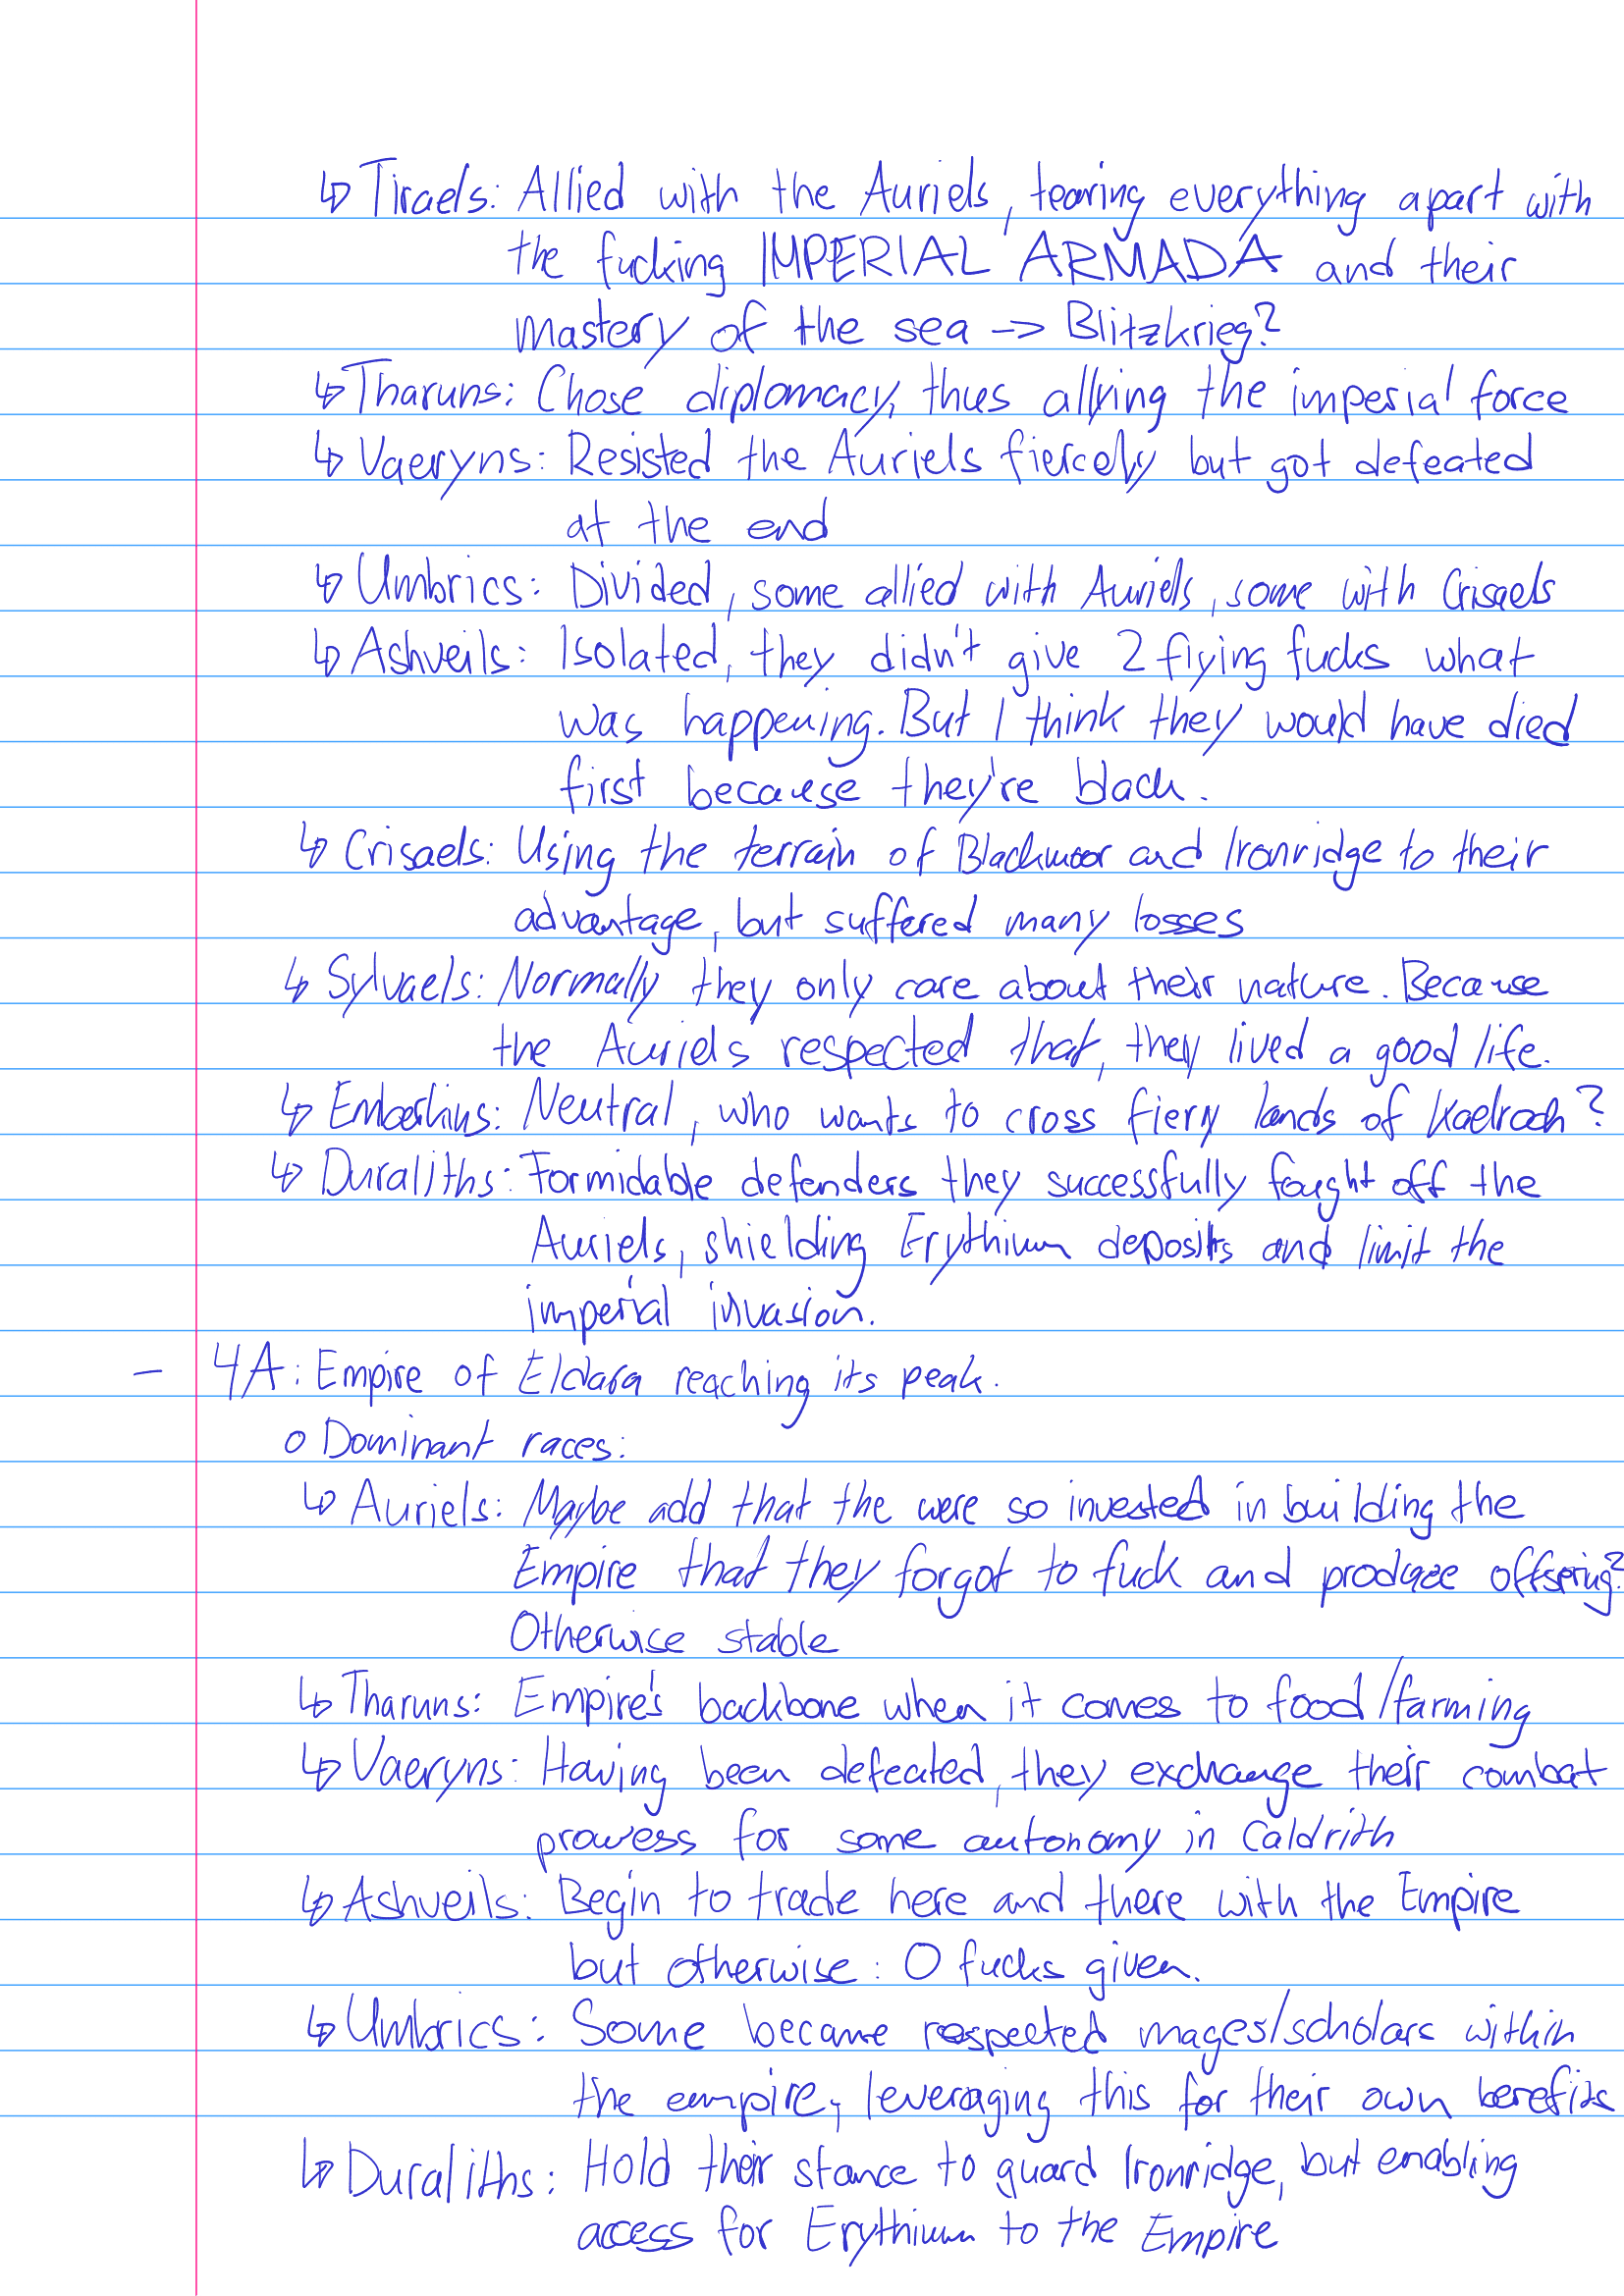 ↳ Tiraels: Allied with the Auriels, tearing everything apart with
the fucking IMPERIAL ARMADA and their
mastery of the sea -> Blitzkrieg?
↳ Tharuns: Chose diplomacy, thus allying the imperial force
↳ Vaeryns: Resisted the Auriels fiercely but got defeated
at the end
↳ Umbrics: Divided, some allied with Auriels, some with Crisaels
↳ Ashveils: Isolated, they didn't give 2 flying fucks what
was happening. But I think they would have died
first because they're black.
↳ Crisaels: Using the terrain of Blackmoor and Ironridge to their
advantage, but suffered many losses
↳ Sylvaels: Normally they only care about their nature. Because
the Auriels respected that, they lived a good life.
↳ Emberkins: Neutral, who wants to cross fiery lands of Kaelroch?
↳ Duraliths: Formidable defenders they successfully fought off the
Auriels, shielding Erythium deposits and limit the
imperial invasion.
- 4A: Empire of Eldara reaching its peak.
o Dominant races:
↳ Auriels: Maybe add that the were so invested in building the
Empire that they forgot to fuck and produce offspring?
Otherwise stable
↳ Tharuns: Empire's backbone when it comes to food/farming
↳ Vaeryns: Having been defeated, they exchange their combat
prowess for some autonomy in Caldrith
↳ Ashveils: Begin to trade here and there with the Empire
but otherwise: 0 fucks given.
↳ Umbrics: Some became respected mages/scholars within
the empire, leveraging this for their own benefits
↳ Duraliths: Hold their stance to guard Ironridge, but enabling
access for Erythium to the Empire